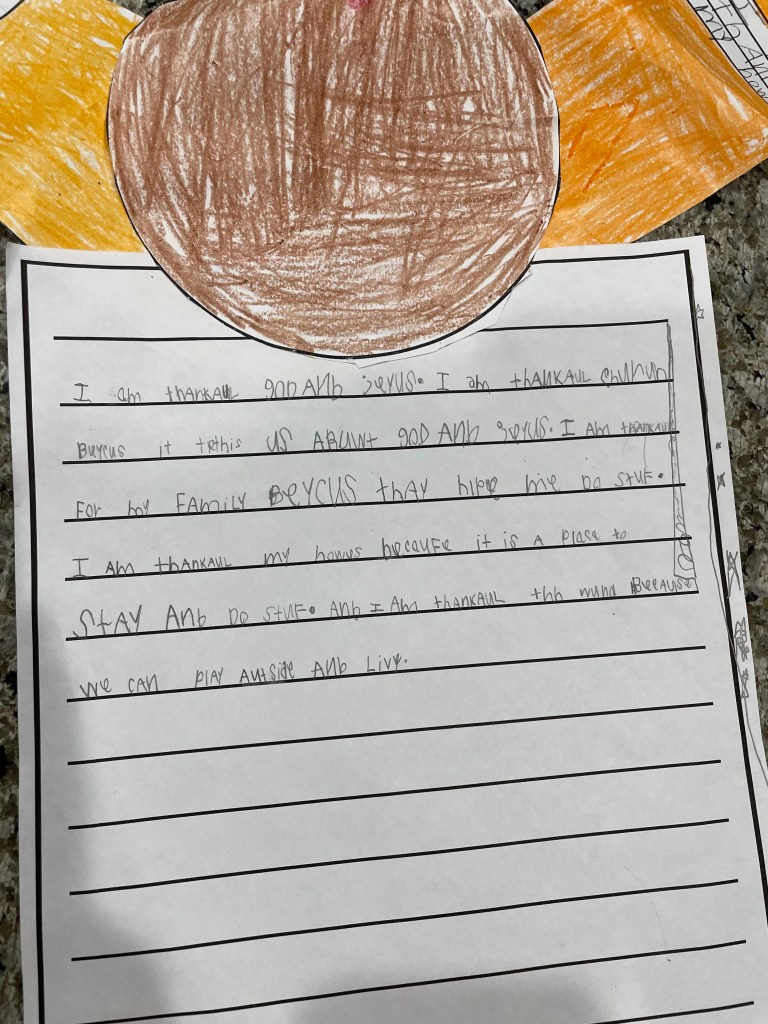 I am thankaul god And jesus. I am thankaul chuhuh
Buycus it tethis us Abuwt god And jesus. I Am thankaul
For my Family Beycus thay hlpe me Do stuf.
I Am thankaul my howus because it is A place to
Stay And Do stuf. And I Am thankaul thh wurld Beecause
we can play autside And Livy.